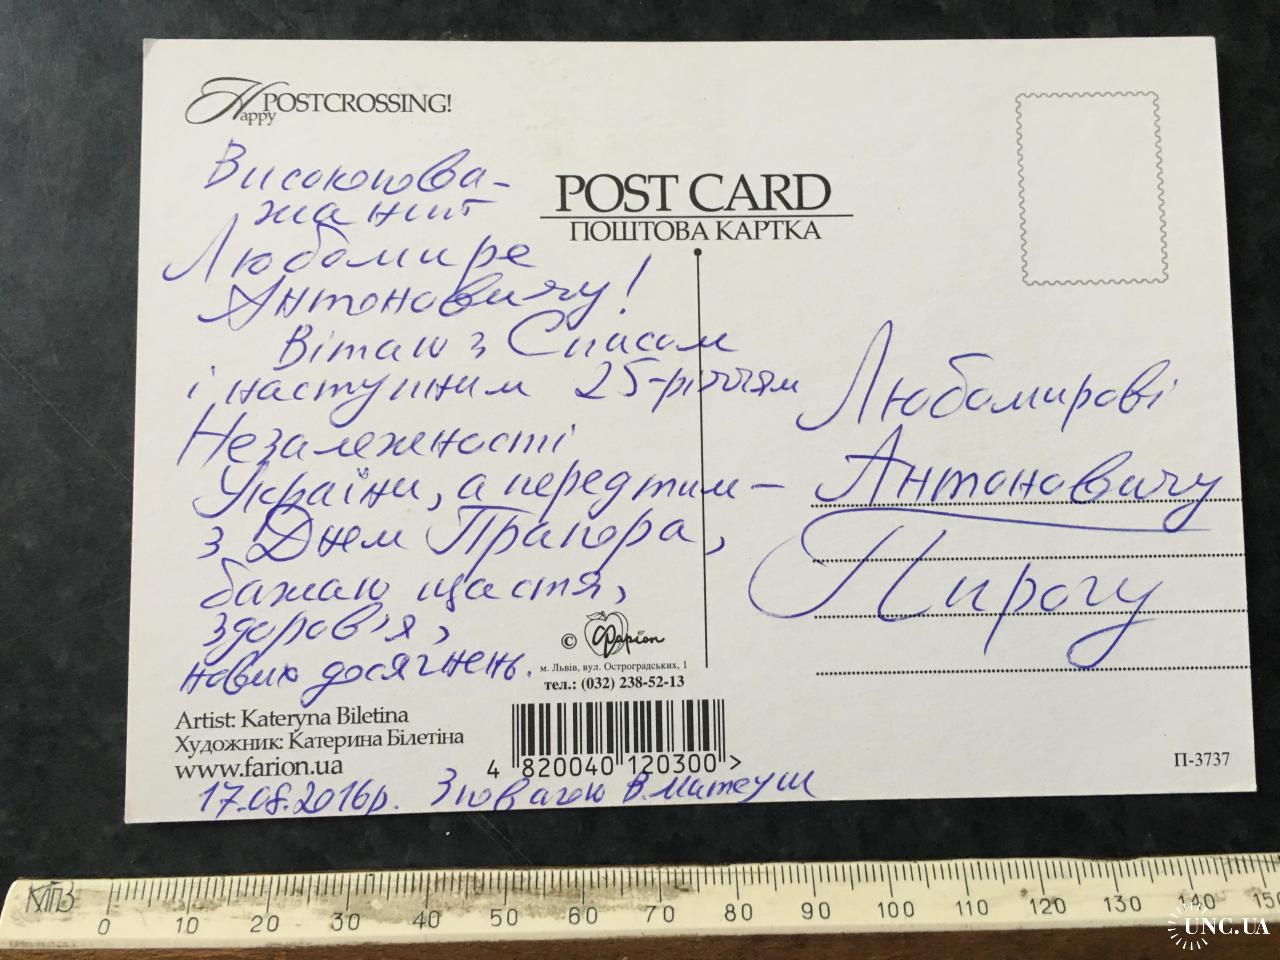 Happy POSTCROSSING!
Високопова-
жаний
Любомире
Антоновичу!
Вітаю з Спасом
і наступним 25-річчям
Незалежності
України, а перед тим –
з Днем Прапора,
бажаю щастя,
здоров'я,
нових досягнень.
POST CARD
ПОШТОВА КАРТКА
Любомирові
Антоновичу
Пирогу
© Фаріон
м. Львів, вул. Остроградських, 1
тел.: (032) 238-52-13
Artist: Kateryna Biletina
Художник: Катерина Білетіна
www.farion.ua
4 820040 120300 >
П-3737
17.08.2016р. З повагою В. Матеуш
КТПЗ
0 10 20 30 40 50 60 70 80 90 100 110 120 130 140 150
UNC.UA